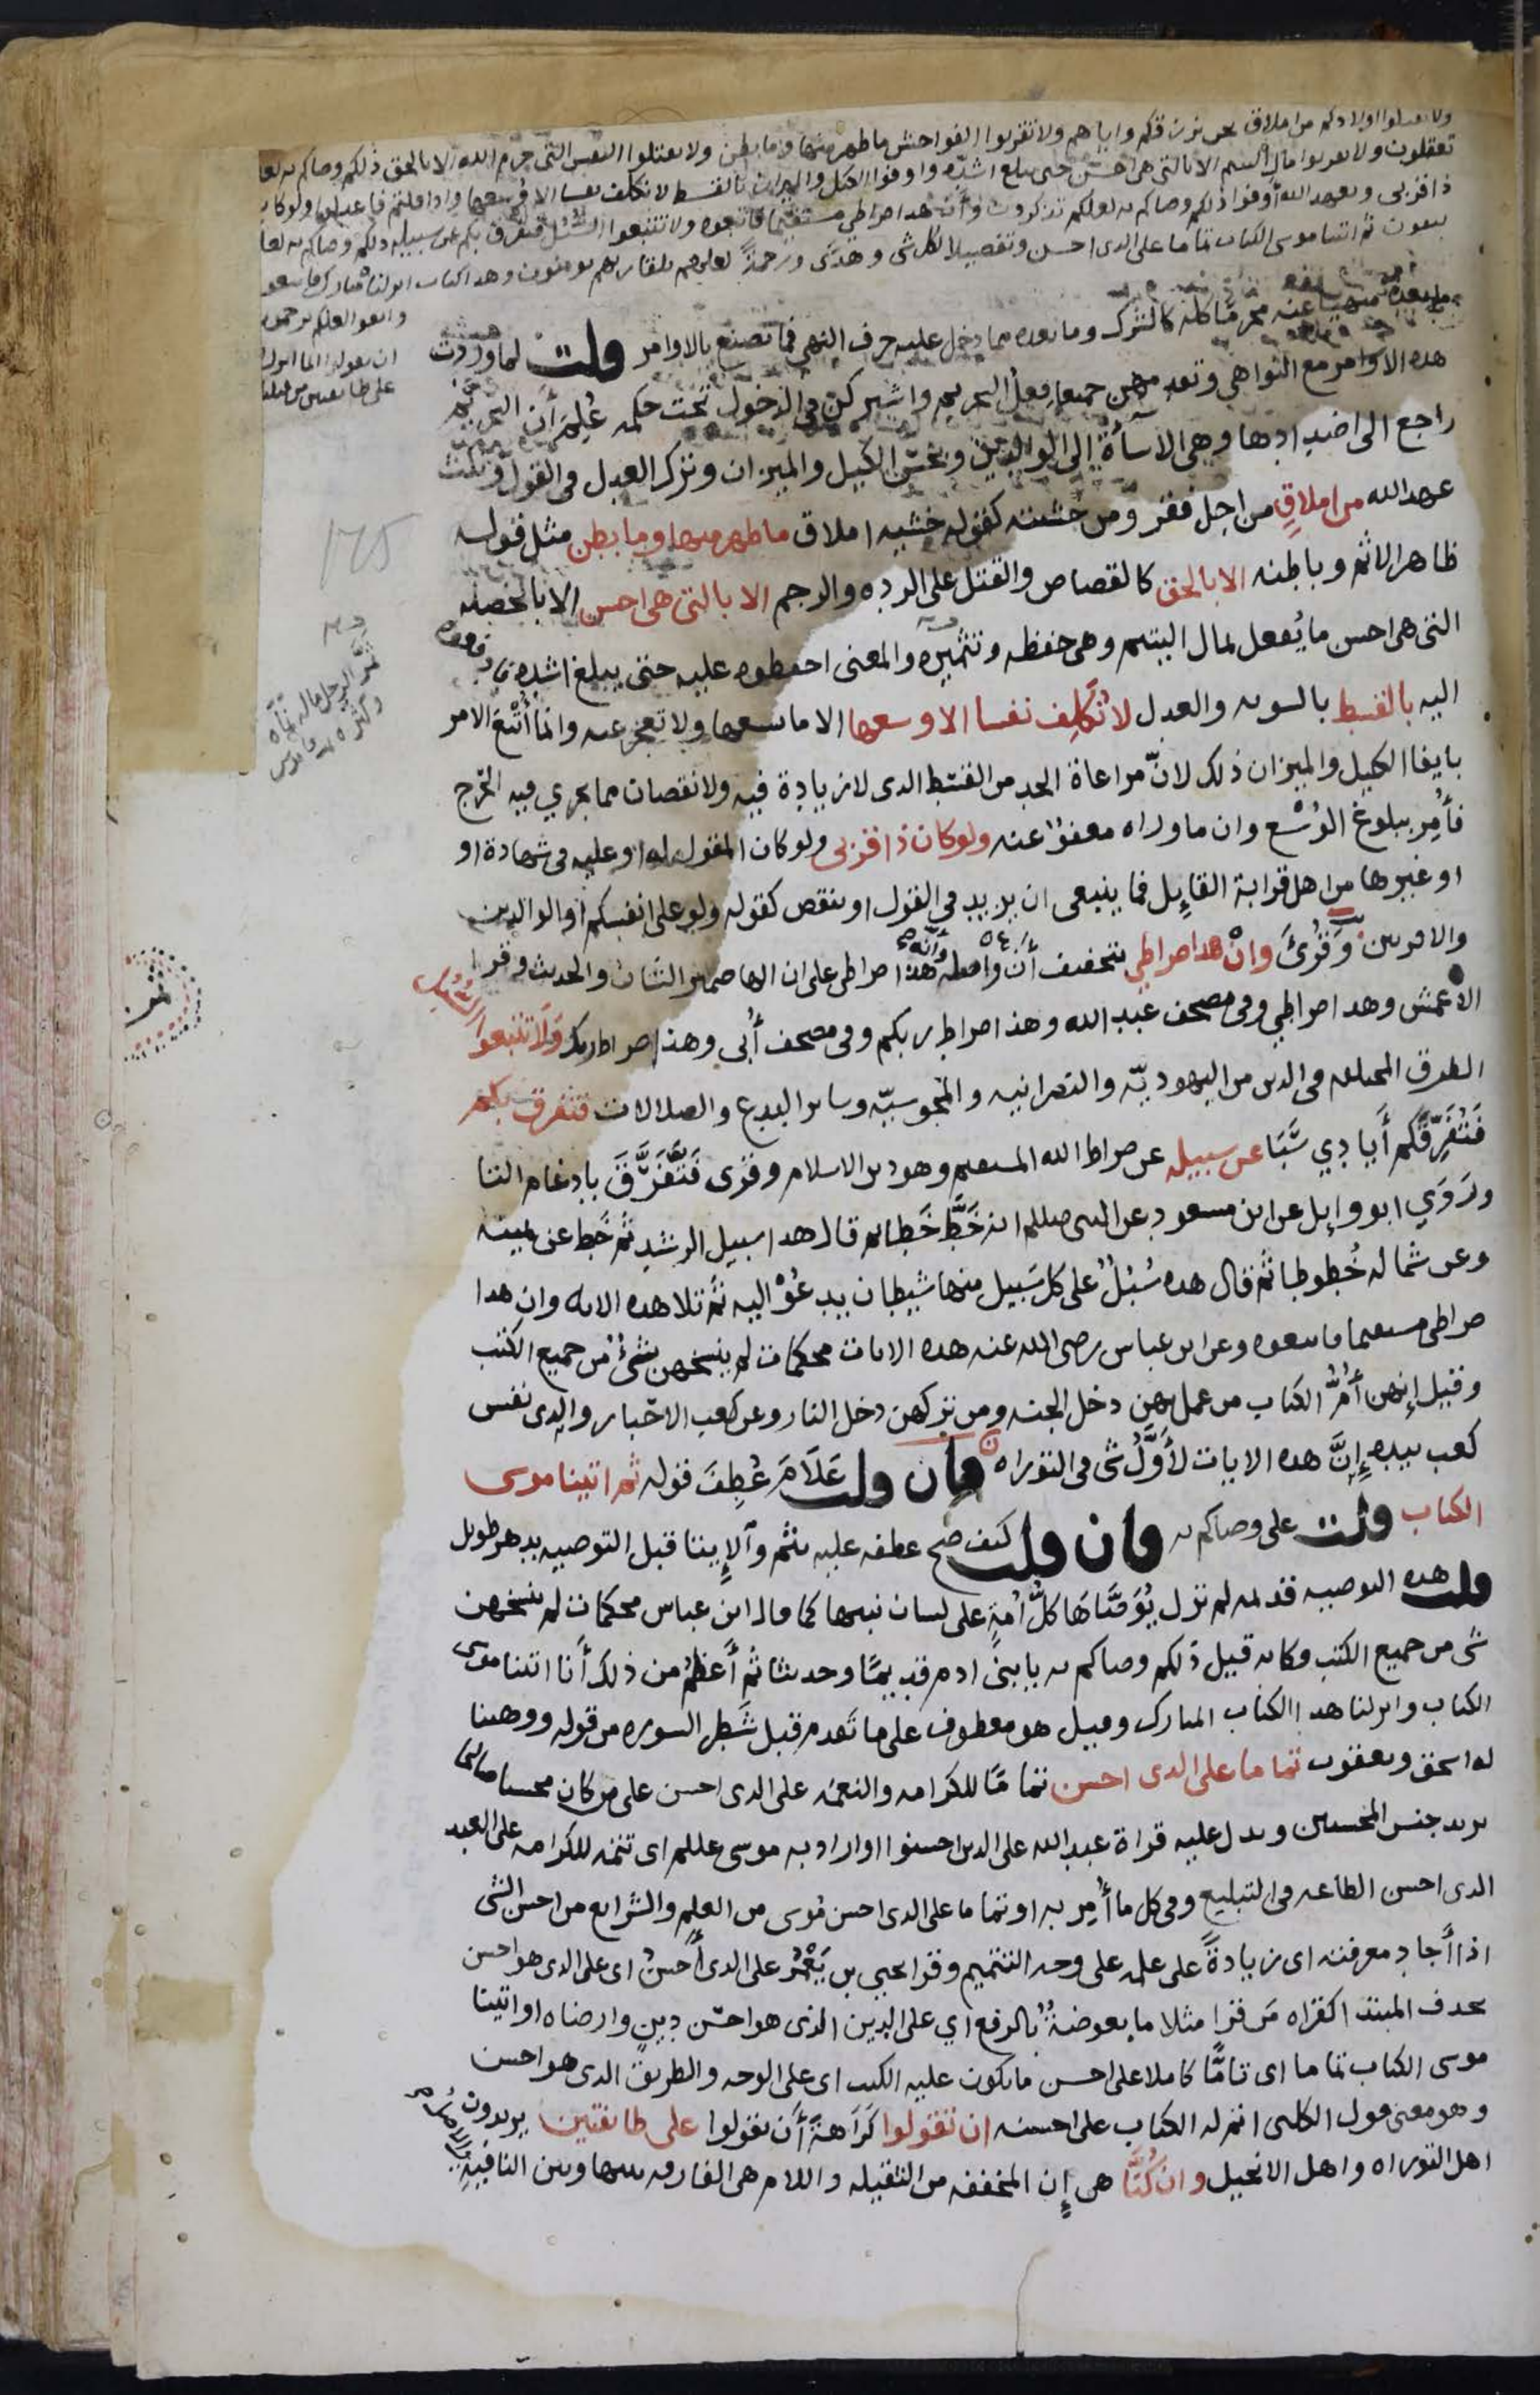 ولا تقتلوا اولادكم من املاق نحن نرزقكم واياهم ولا تقربوا الفواحش ما ظهر منها وما بطن ولا تقتلوا النفس التي حرم الله الا بالحق ذلكم وصاكم به لعلكم
تعقلون ولا تقربوا مال اليتيم الا بالتي هي احسن حتى يبلغ اشده واوفوا الكيل والميزان بالقسط لا نكلف نفسا الا وسعها واذا قلتم فاعدلوا ولو كان
ذا قربى وبعهد الله اوفوا ذلكم وصاكم به لعلكم تذكرون وأن هذا صراطي مستقيما فاتبعوه ولا تتبعوا السبل فتفرق بكم عن سبيله ذلكم وصاكم به لعلكم
تتقون ثم اتينا موسى الكتاب تماما على الذي احسن وتفصيلا لكل شى وهدى ورحمة لعلهم بلقا ربهم يومنون وهذا كتاب انزلناه مبارك فاتبعوه
واتقوا لعلكم ترحمون
ان تقولوا انما انزل
على طايفتين من قبلنا
ما بعده منهيا عنه محرما كله كالشرك وما بعده مما دخل عليه حرف النهي فما تصنع بالاوامر قلت لما وردت
هذه الاوامر مع النواهي وتقدمهن جميعا فعل التحريم واشتركن في الدخول تحت حكمه علم أن التحريم
راجع الى اضدادها وهي الاسأة إلى الوالدين وبخس الكيل والميزان وترك العدل في القول ونكث
عهد الله من املاق من اجل فقر ومن خشيته كقوله خشيه املاق ما ظهر منها وما بطن مثل قوله
ظاهر الاثم وباطنه الا بالحق كالقصاص والقتل على الرده والرجم الا بالتي هي احسن الا بالخصله
التي هي احسن ما يفعل بمال اليتيم وهي حفظه وتثميره والمعنى احفظوه عليه حتى يبلغ اشده فادفعوه
اليه بالقسط بالسويه والعدل لا نكلف نفسا الا وسعها الا ما يسعها ولا تعجز عنه وانما أتبع الامر
بايفا الكيل والميزان ذلك لانّ مراعاة الحد من القسط الذي لا زيادة فيه ولا نقصان مما يجري فيه الحرج
فأمر ببلوغ الوسع وان ما وراه معفو عنه ولو كان ذا قربى ولو كان المقول له او عليه في شهادة او
او غيرها من اهل قرابة القايل فما ينبغي ان يزيد في القول او ينقص كقوله ولو على انفسكم أو الوالدين
والاقربين وقرئ وانْ هذا صراطي بتخفيف أن واصله وأنه هذا صراطي على ان الها ضمير الشان والحديث وقرا
الأعمش وهذا صراطي وفي مصحف عبد الله وهذا صراط ربكم وفي مصحف أبي وهذا صراط ربك ولا تتبعوا السبل
الطرق المختلفه في الدين من اليهوديّه والنصرانيه والمجوسيّه وساير البدع والضلالات فتفرق بكم
فتفرقكم أيادي سبا عن سبيله عن صراط الله المستقيم وهو دين الاسلام وقرى فتّفرّق بادغام التا
وروي ابو وايل عن ابن مسعود عن النبي صللم انه خطّ خطا ثم قال هذا سبيل الرشد ثم خط عن يمينه
وعن شماله خطوطا ثم قال هذه سبل على كل سبيل منها شيطان يدعو اليه ثم تلا هذه الايه وان هذا
صراطي مستقيما فاتبعوه وعن ابن عباس رضي الله عنه هذه الايات محكمات لم ينسخهن شئ من جميع الكتب
وقيل إنهن أمّ الكتاب من عمل بهن دخل الجنه ومن تركهن دخل النار وعن كعب الاحبار والذي نفس
كعب بيده إنّ هذه الايات لأوّل شى في التوراه فان قلت علام عطف قوله ثم اتينا موسى
الكتاب قلت على وصاكم به فان قلت كيف صح عطفه عليه بثم والإيتا قبل التوصيه بدهر طويل
قلت هذه التوصيه قديمه لم تزل يوصّاها كلّ أمة على لسان نبيها كما قال ابن عباس محكمات لم ينسخهن
شى من جميع الكتب فكانه قيل ذلكم وصاكم به يا بنى ادم قديما وحديثا ثم أعظم من ذلك أنا اتينا موسى
الكتاب وانزلنا هذا الكتاب المبارك وقيل هو معطوف على ما تقدم قبل شطر السوره من قوله ووهبنا
له اسحق ويعقوب تماما على الذى احسن تماما للكرامه والنعمه على الذى احسن على من كان محسنا صالحا
يريد جنس المحسنين ويدل عليه قراة عبد الله على الذين احسنوا او اراد به موسى عللم اى تتمه للكرامه على العبد
الذى احسن الطاعه في التبليغ وفي كل ما أمر به او تماما على الذى احسن موسى من العلم والشرايع من احسن الشى
اذا أجاد معرفته اى زيادة على علمه على وجه التتميم وقرا يحيى بن يعمر على الذى أحسنُ اى على الذى هو احسن
بحذف المبتدا كقراه من قرا مثلا ما بعوضةٌ بالرفع اي على الدين الذى هو احسن دين وارضاه او اتينا
موسى الكتاب تماما اى تاما كاملا على احسن ما يكون عليه الكتب اى على الوجه والطريق الذى هو احسن
وهو معنى قول الكلبى اتم له الكتاب على احسنه ان تقولوا كراهة أن تقولوا على طايفتين يريدون
اهل التوراه واهل الانجيل وان كنا هى إن المخففه من الثقيله واللام هى الفارقه بينها وبين النافيه
175
ثمر الرجل ماله نماه
وكثره قاموس